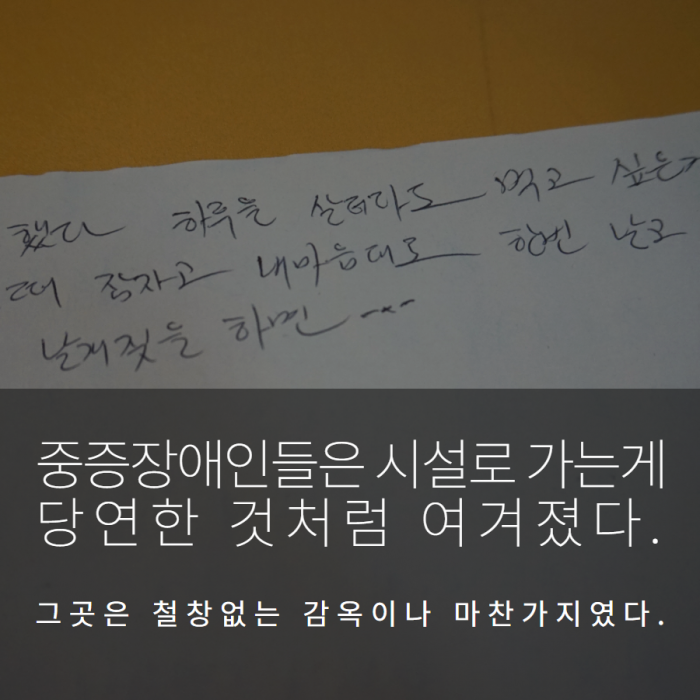 했다 하루를 살더라도 먹고 싶은
때 잠자고 내마음대로 한번 날고
날개짓을 하면
중증장애인들은 시설로 가는게
당연한 것처럼 여겨졌다.
그곳은 철창없는 감옥이나 마찬가지였다.